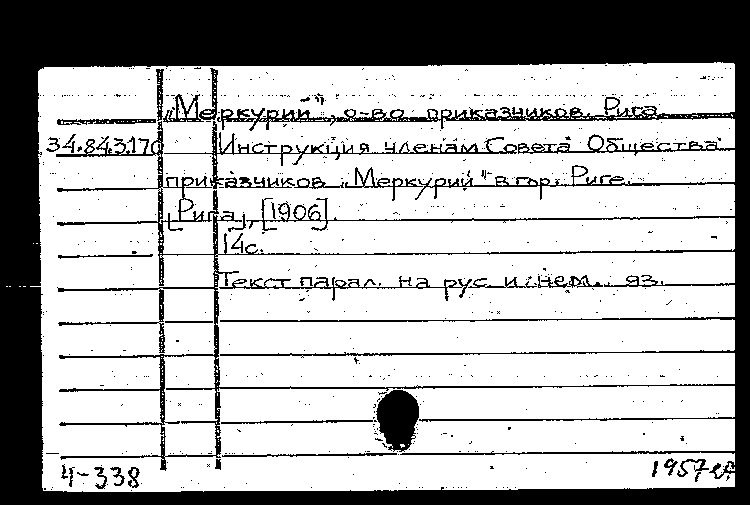 „Меркурий", о-во приказчиков. Рига.
34.843.170 Инструкция членам Совета Общества
приказчиков „Меркурий" в гор. Риге.
[Рига], [1906].
14с.
Текст парал. на рус. и нем. яз.
4-338 1957